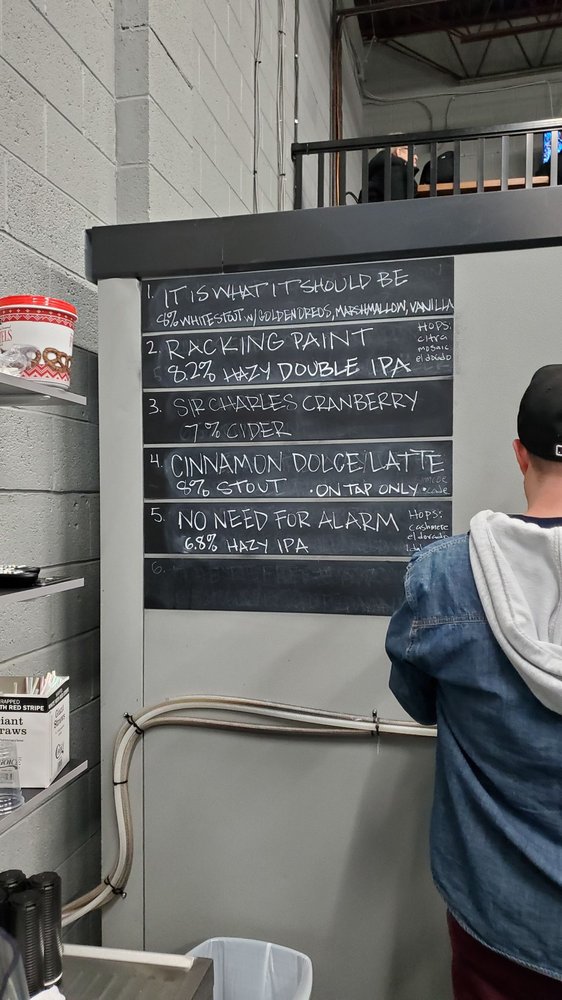 1. IT IS WHAT IT SHOULD BE
8% WHITE STOUT W/ GOLDEN OREOS, MARSHMALLOW, VANILLA
2. RACKING PAINT
8.2% HAZY DOUBLE IPA
HOPS:
citra
mosaic
el dorado
3. SIR CHARLES CRANBERRY
7% CIDER
4. CINNAMON DOLCE LATTE
8% STOUT • ON TAP ONLY •
5. NO NEED FOR ALARM
6.8% HAZY IPA
HOPS:
cashmere
el dorado
6.
WRAPPED
TH RED STRIPE
iant
raws